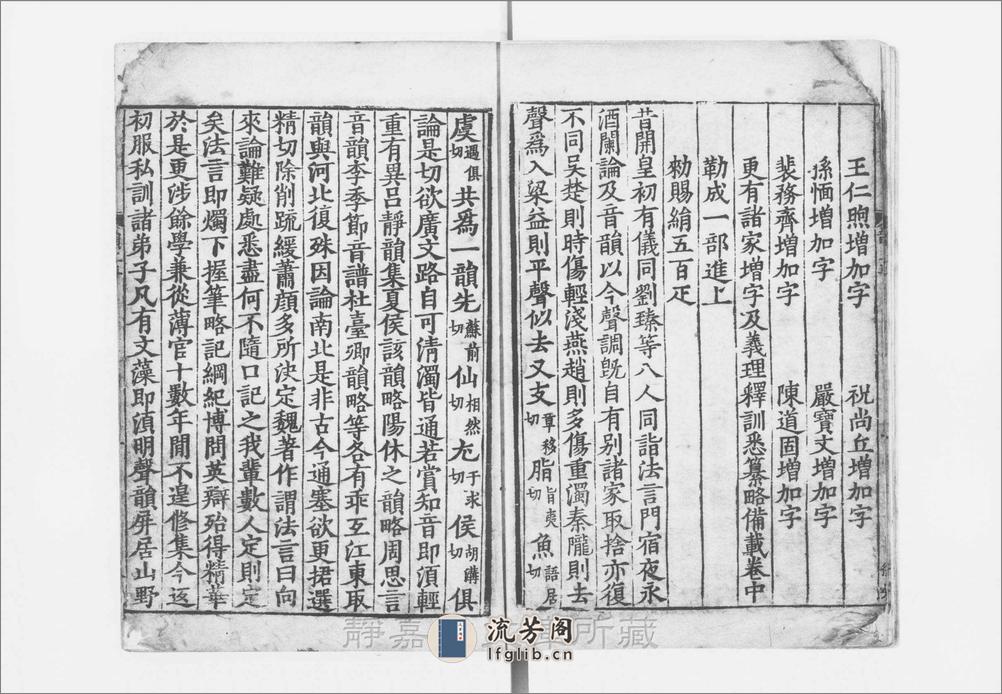 王仁煦增加字　祝尚丘增加字
孫愐增加字　嚴寶文增加字
裴務齊增加字　陳道固增加字
更有諸家增字及義理釋訓悉纂略備載卷中
勒成一部進上
勑賜絹五百疋
昔開皇初有儀同劉臻等八人同詣法言門宿夜永
酒闌論及音韻以今聲調旣自有別諸家取捨亦復
不同吳楚則時傷輕淺燕趙則多傷重濁秦隴則去
聲爲入梁益則平聲似去又支章移切脂旨夷切魚語居切
虞遇俱切共爲一韻先蘇前切仙相然切尤于求切侯胡溝切俱
論是切欲廣文路自可清濁皆通若賞知音即須輕
重有異呂靜韻集夏侯該韻略陽休之韻略周思言
音韻李季節音譜杜臺卿韻略等各有乖互江東取
韻與河北復殊因論南北是非古今通塞欲更捃選
精切除削疏緩蕭顔多所決定魏著作謂法言曰向
來論難疑處悉盡何不隨口記之我輩數人定則定
矣法言即燭下握筆略記綱紀博問英辯殆得精華
於是更涉餘學兼從薄宦十數年閒不遑修集今返
初服私訓諸弟子凡有文藻即須明聲韻屏居山野
靜嘉 所藏
流芳阁
lfglib.cn